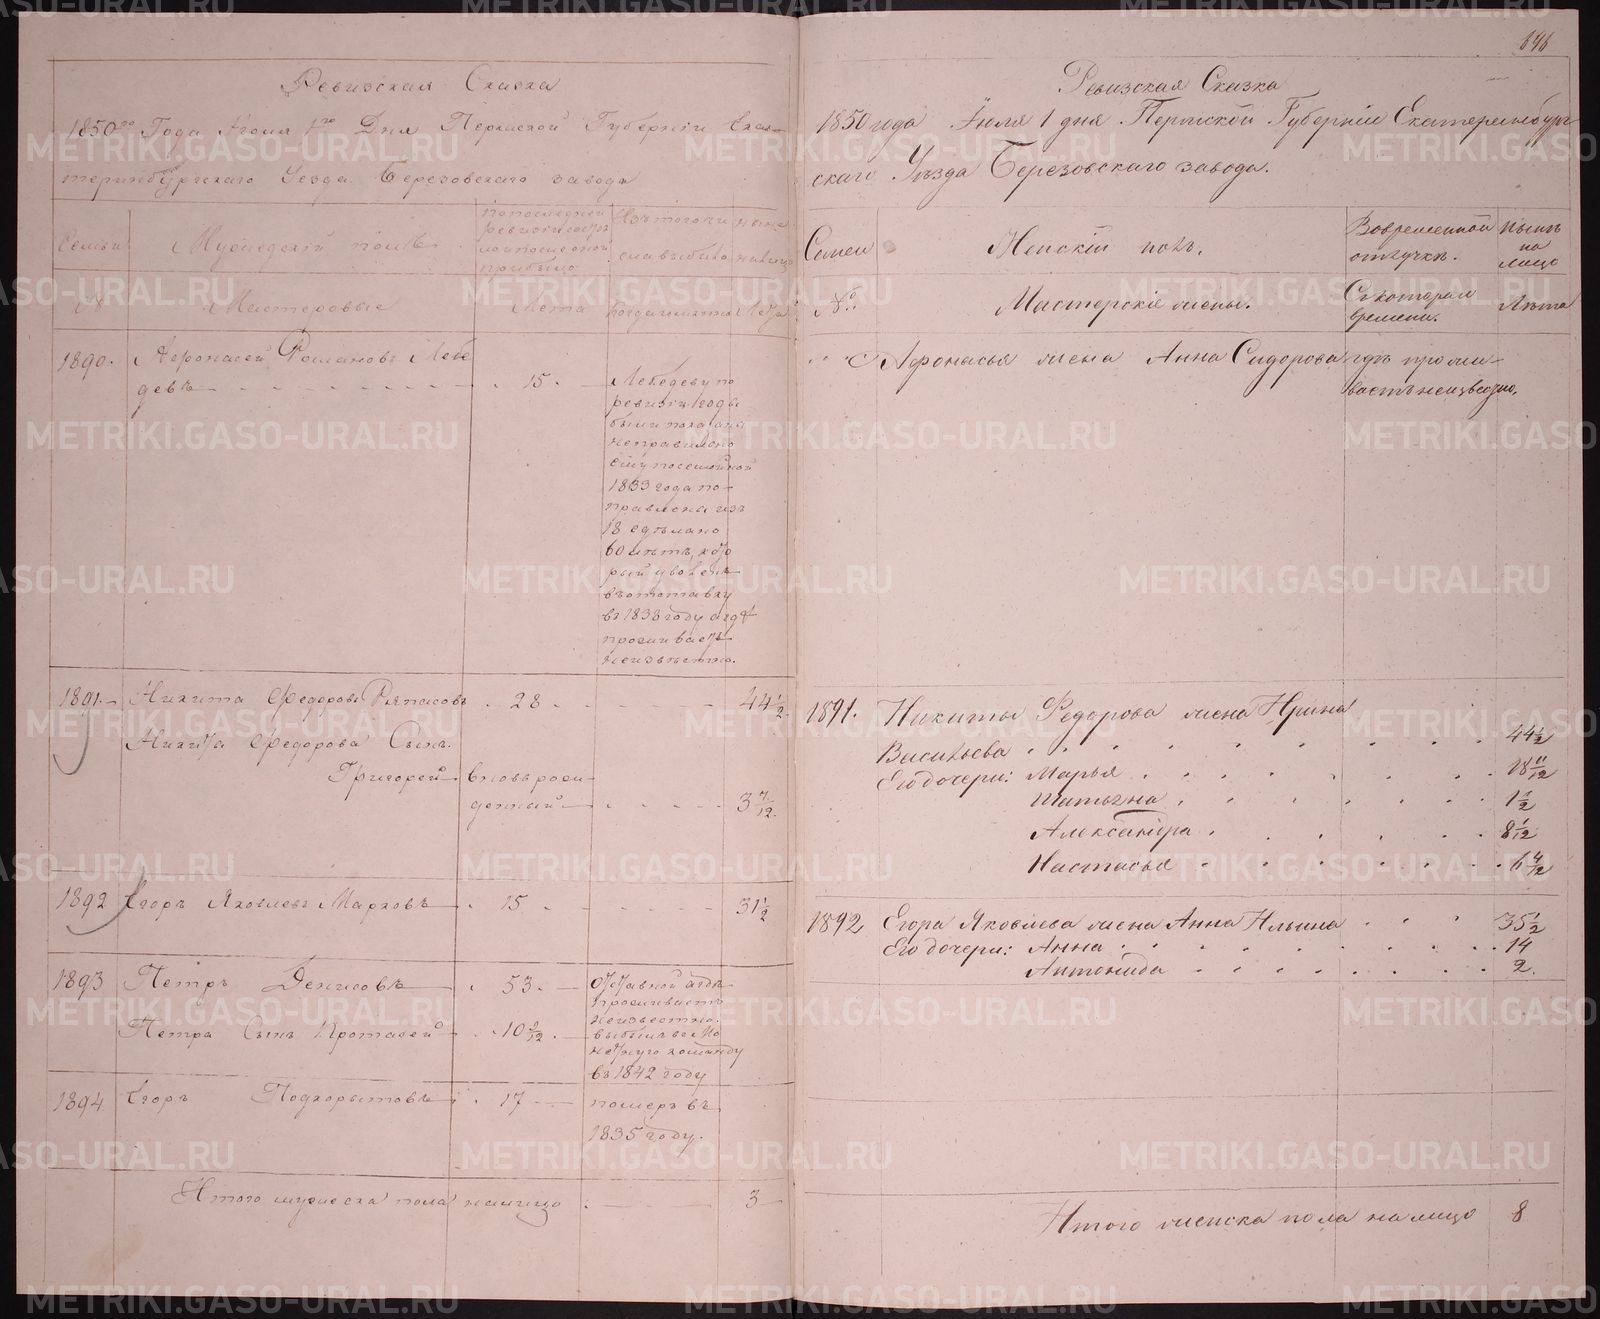 Ревизская Сказка
1850го Года Июля 1го Дня Пермской Губернiи Ека-
теринбургскаго Уезда Березовскаго завода
Семьи
Мужеский полъ
По последней ревизiи состояло и после оной прибыло
Изъ того числа выбыло
Ныне на лицо
№
Мастеровые
Лета
Когда именно
Лета
1890. Афонасей Романовъ Лебе
девъ 15.
Лебедеву по
ревизiи годы
были показаны
неправильно
ему по семейной
1833 года по-
правлены изъ
18 сделано
60 летъ, кото
рый уволенъ
въ отставку
въ 1838 году а где
проживаетъ
неизвестно.
1891. Никита Федоровъ Ряпасовъ 28 44 1/2
Никиты Федорова Сынъ.
Григорей вновь рож-
денный 3 7/12
1892 Егоръ Яковлевъ Марковъ 15 31 1/2
1893 Петръ Денисовъ 53.
Отставной а где
проживаетъ
неизвестно.
Петра Сынъ Протасей 10
выбылъ въ Мо
нетную команду
въ 1842 году
1894 Егоръ Подкорытовъ 17
померъ въ
1835 году.
Итого мужеска пола налицо 3
646
Ревизская Сказка
1850 года Iюля 1 дня Пермской Губернiи Екатеринбург
скаго Уъзда Березовскаго завода.
Семьи
Женскiй полъ.
Во временной отлучкъ.
Нынъ на лицо
№:
Мастерскiе жены.
Съ котораго времени.
Лъта
Афонасья жена Анна Сидорова гдъ прожи-
ваетъ неизвестно.
1891. Никиты Федорова жена Ирина
Васильева 44 1/2
Его дочери: Марья 18 11/12
Татьяна 1 1/2
Александра 8 1/12
Настасья 6 4/12
1892 Егора Яковлева жена Анна Ильина 35 1/2
Его дочери: Анна 14
Антонида 2.
Итого женска пола на лицо 8
METRIKI.GASO-URAL.RU